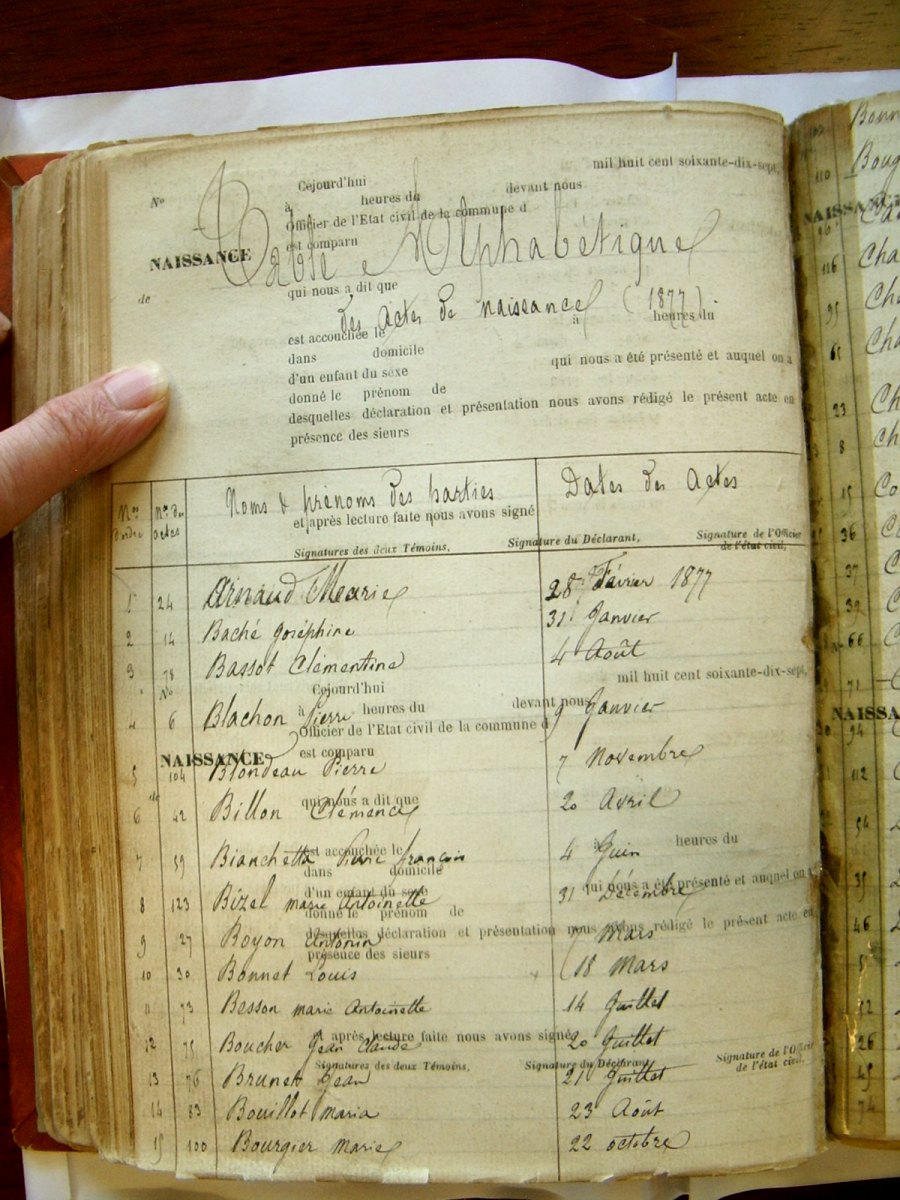 mil huit cent soixante-dix-sept,
Nº Cejourd'hui
à heures du devant nous
Officier de l'Etat civil de la commune d
NAISSANCE est comparu
Table Alphabétique
de qui nous a dit que
des actes de naissance (1877).
est accouchée le à heures du
dans domicile
d'un enfant du sexe qui nous a été présenté et auquel on a
donné le prénom de
desquelles déclaration et présentation nous avons rédigé le présent acte en
présence des sieurs
Nos d'ordre Nos des actes Noms & prénoms des parties Dates des Actes
et après lecture faite nous avons signé
Signatures des deux Témoins, Signature du Déclarant, Signature de l'Officier de l'état civil,
1 24 Arnaud Marie 28 Février 1877
2 14 Baché Joséphine 31 Janvier
3 78 Bassot Clémentine 4 Août
Nº Cejourd'hui mil huit cent soixante-dix-sept,
à heures du devant nous
4 6 Blachon Pierre 9 Janvier
Officier de l'Etat civil de la commune d
NAISSANCE est comparu
5 104 Blondeau Pierre 7 Novembre
de qui nous a dit que
6 42 Billon Clémence 20 Avril
est accouchée le heures du
7 59 Bianchetta Pierre françois 4 Juin
dans domicile
d'un enfant du sexe qui nous a été présenté et auquel on a
8 123 Bizel marie Antoinette 31 Décembre
donné le prénom de
desquelles déclaration et présentation nous avons rédigé le présent acte en
9 27 Boyon Antonin 7 Mars
présence des sieurs
10 30 Bonnet Louis 18 Mars
11 73 Besson marie Antoinette 14 Juillet
et après lecture faite nous avons signé
12 75 Boucher Jean Claude 20 Juillet
Signatures des deux Témoins, Signature du Déclarant, Signature de l'Officier de l'état civil,
13 76 Brunet Jean 21 Juillet
14 83 Bouillot maria 23 Août
15 100 Bourgier Marie 22 octobre
110
NAISSANCE
116
95
23
8
15
36
37
66
71
NAISSA
94
112
54
46
26
45
74